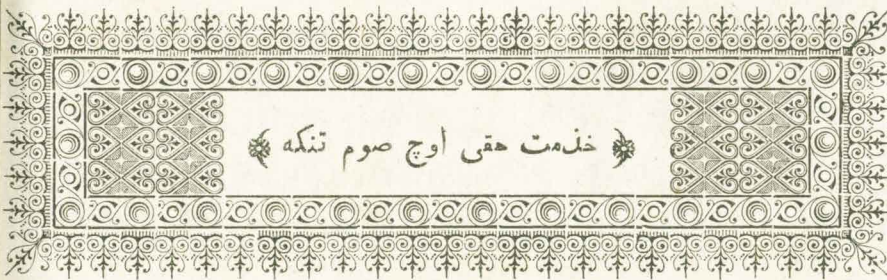 خذمت حقى اوچ صوم تنكه